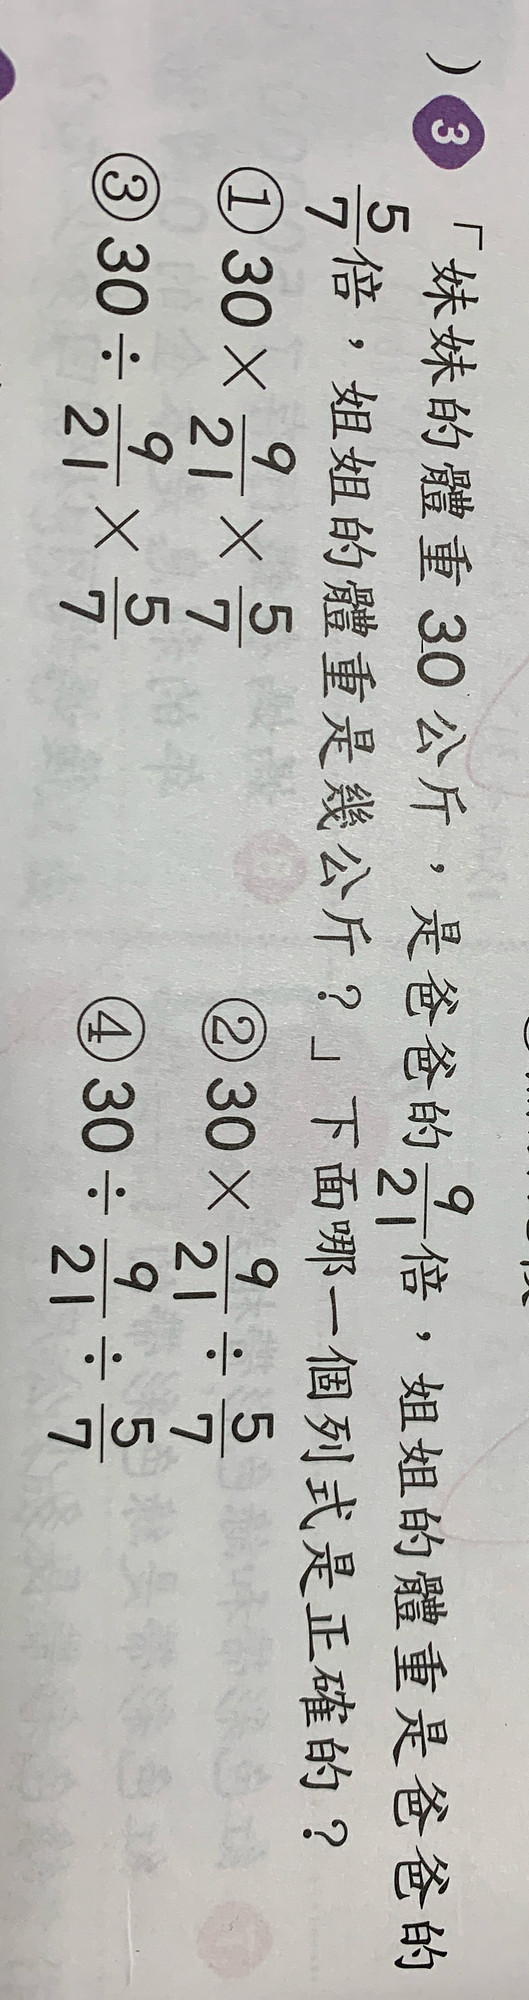 ) 3 「妹妹的體重 30 公斤，是爸爸的 9/21 倍，姐姐的體重是爸爸的
5/7 倍，姐姐的體重是幾公斤？」下面哪一個列式是正確的？
① 30 × 9/21 × 5/7 ② 30 × 9/21 ÷ 5/7
③ 30 ÷ 9/21 × 5/7 ④ 30 ÷ 9/21 ÷ 5/7